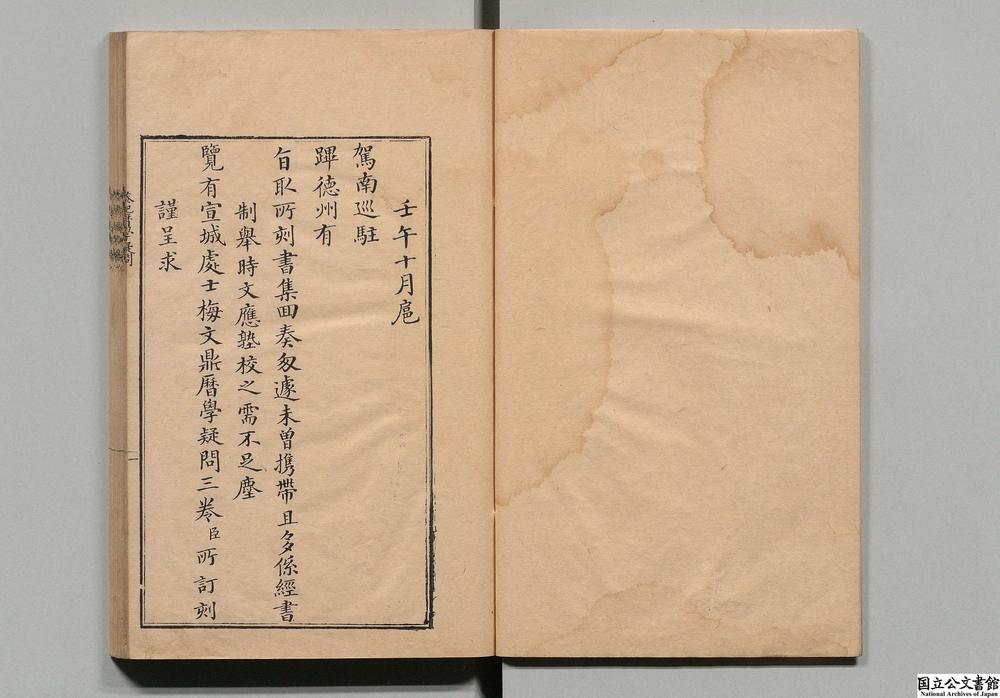 壬午十月扈
駕南巡駐
蹕德州有
旨取所刻書集回奏匆遽未曾攜帶且多係經書
制舉時文應塾校之需不足塵
覽有宣城處士梅文鼎曆學疑問三卷臣所訂刻
謹呈求
国立公文書館
National Archives of Japan